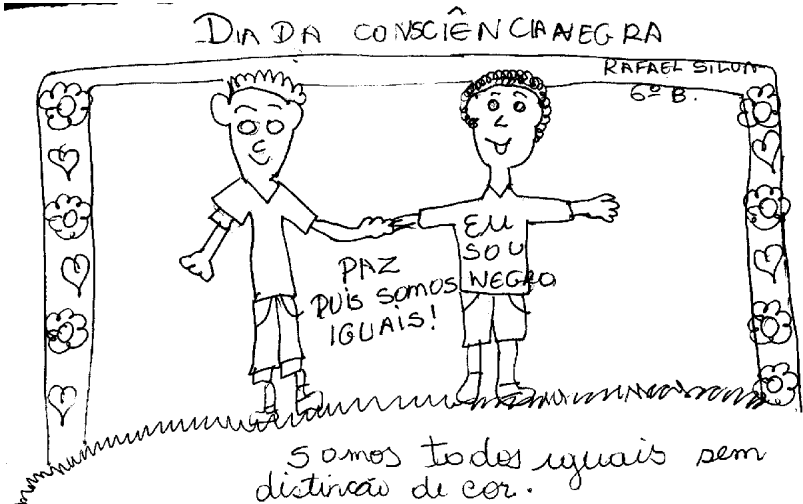 DIA DA CONSCIÊNCIA NEGRA
RAFAEL SILVA
6º B.
EU
SOU
NEGRO
PAZ
PUIS SOMOS
IGUAIS!
somos todos iguais sem
distinção de cor.